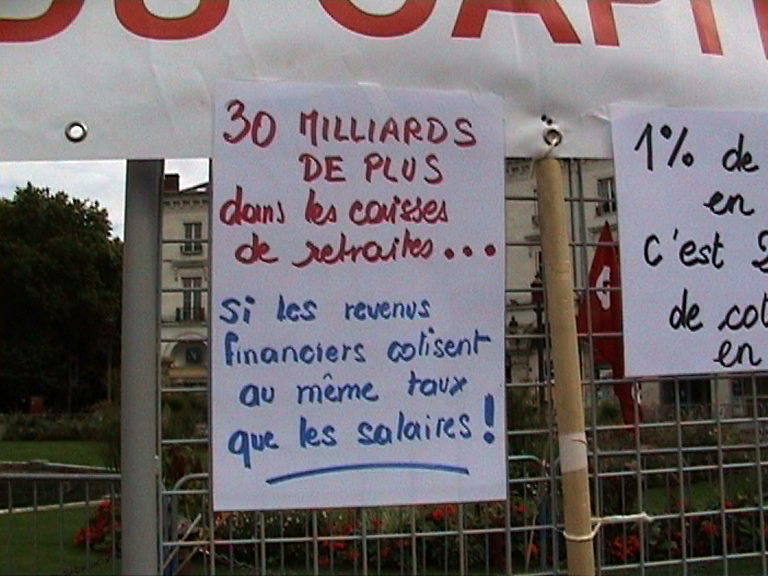 DU CAPI
30 MILLIARDS
DE PLUS
dans les caisses
de retraites...
Si les revenus
financiers cotisent
au même taux
que les salaires!
1% de
en
c'est 2
de cot
en